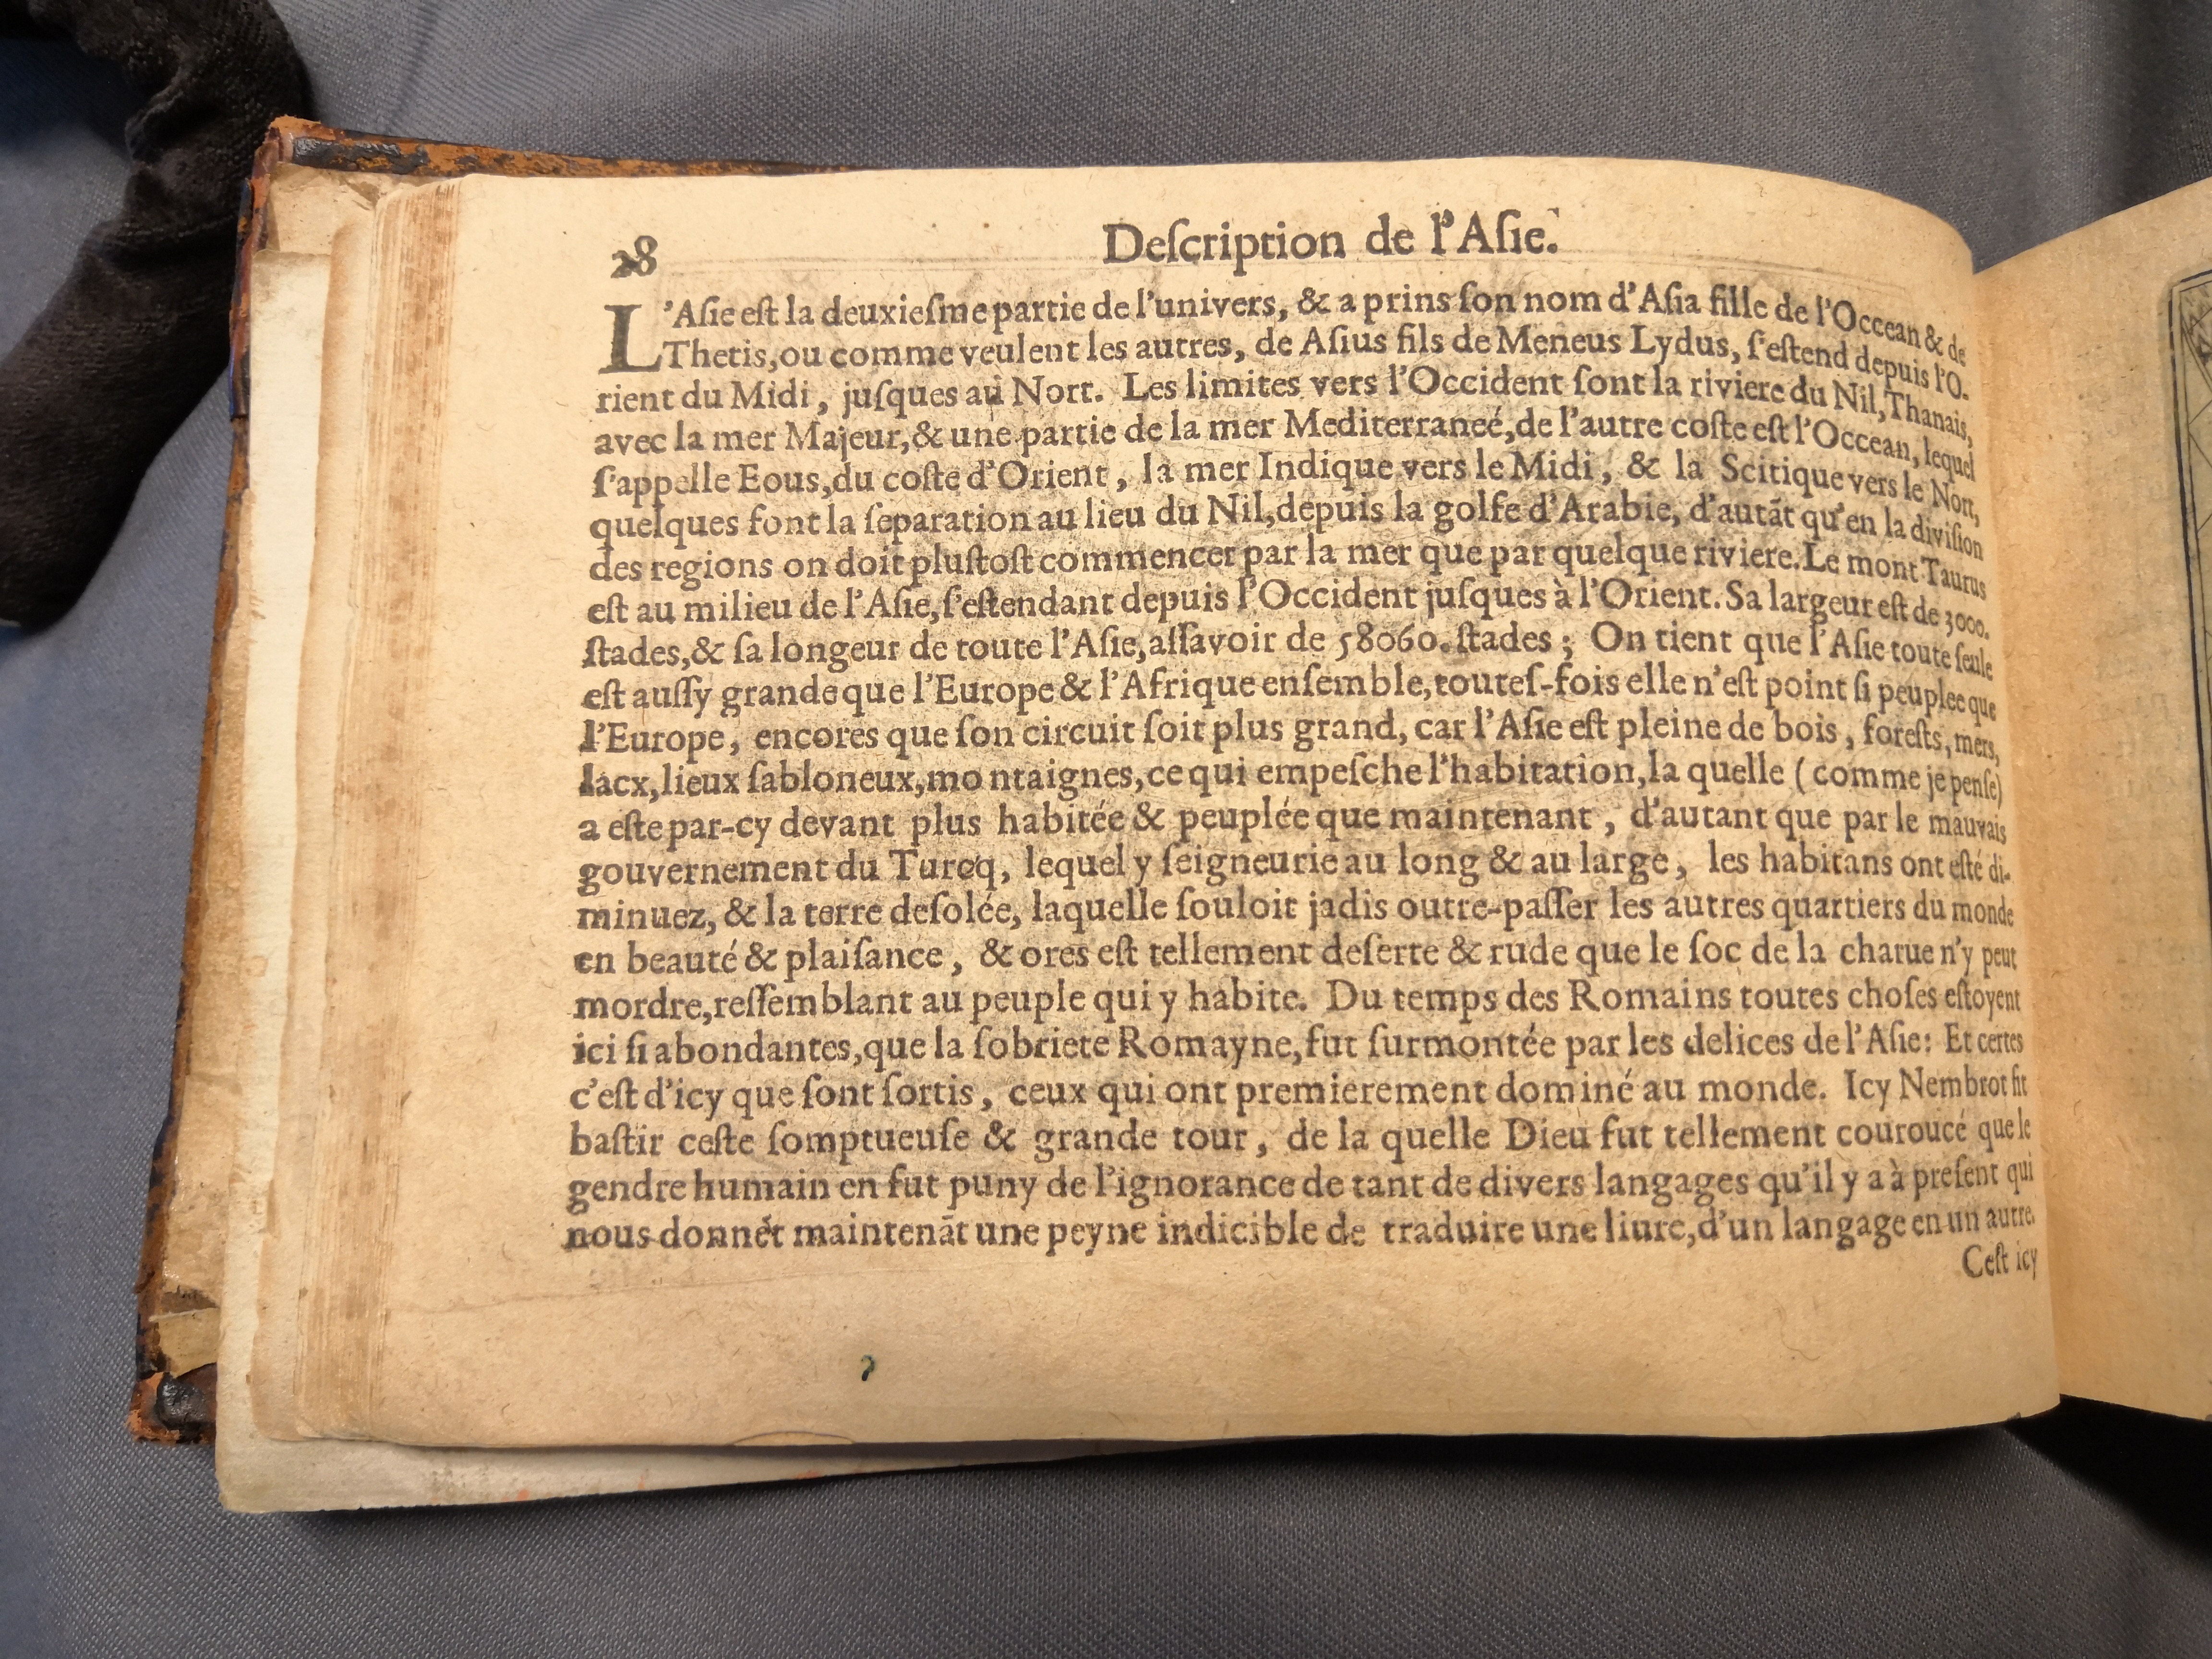 28
Deſcription de l'Aſie.
L'Aſie eſt la deuxieſme partie de l'univers, & a prins ſon nom d'Aſia fille de l'Occean & de
Thetis, ou comme veulent les autres, de Aſius fils de Meneus Lydus, ſ'eſtend depuis l'O-
rient du Midi, juſques au Nort. Les limites vers l'Occident ſont la riviere du Nil, Thanais,
avec la mer Majeur, & une partie de la mer Mediterraneé, de l'autre coſte eſt l'Occean, lequel
ſ'appelle Eous, du coſte d'Orient, la mer Indique vers le Midi, & la Scitique vers le Nort,
quelques font la ſeparation au lieu du Nil, depuis la golfe d'Arabie, d'autãt qu'en la diviſion
des regions on doit pluſtoſt commencer par la mer que par quelque riviere. Le mont Taurus
eſt au milieu de l'Aſie, ſ'eſtendant depuis l'Occident juſques à l'Orient. Sa largeur eſt de 3000.
ſtades, & ſa longeur de toute l'Aſie, aſſavoir de 58060. ſtades ; On tient que l'Aſie toute ſeule
eſt auſſy grande que l'Europe & l'Afrique enſemble, touteſ-fois elle n'eſt point ſi peuplee que
l'Europe, encores que ſon circuit ſoit plus grand, car l'Aſie eſt pleine de bois, foreſts, mers,
lacx, lieux ſabloneux, montaignes, ce qui empeſche l'habitation, la quelle (comme je penſe)
a eſte par-cy devant plus habitée & peuplée que maintenant, d'autant que par le mauvais
gouvernement du Turcq, lequel y ſeigneurie au long & au large, les habitans ont eſté di-
minuez, & la terre deſolée, laquelle ſouloit jadis outre-paſſer les autres quartiers du monde
en beauté & plaiſance, & ores eſt tellement deſerte & rude que le ſoc de la charue n'y peut
mordre, reſſemblant au peuple qui y habite. Du temps des Romains toutes choſes eſtoyent
ici ſi abondantes, que la ſobriete Romayne, fut ſurmontée par les delices de l'Aſie: Et certes
c'eſt d'icy que ſont ſortis, ceux qui ont premierement dominé au monde. Icy Nembrot fit
baſtir ceſte ſomptueuſe & grande tour, de la quelle Dieu fut tellement couroucé que le
gendre humain en fut puny de l'ignorance de tant de divers langages qu'il y a à preſent qui
nous donnẽt maintenãt une peyne indicible de traduire une liure, d'un langage en un autre.
Ceſt icy